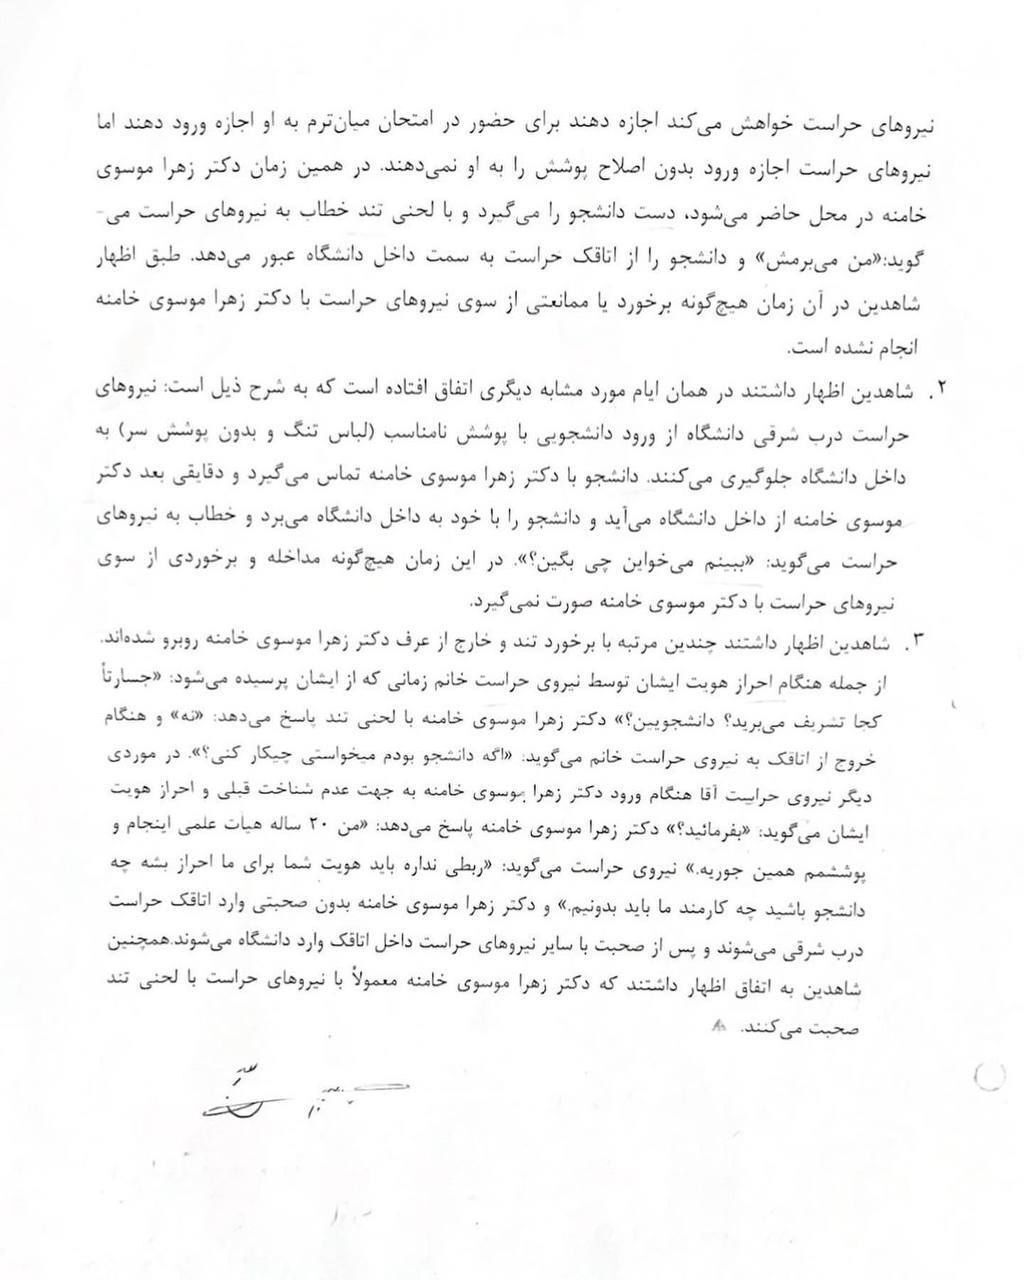 نیروهای حراست خواهش می‌کند اجازه دهند برای حضور در امتحان میان‌ترم به او اجازه ورود دهند اما
نیروهای حراست اجازه ورود بدون اصلاح پوشش را به او نمی‌دهند. در همین زمان دکتر زهرا موسوی
خامنه در محل حاضر می‌شود، دست دانشجو را می‌گیرد و با لحنی تند خطاب به نیروهای حراست می-
گوید:«من می‌برمش» و دانشجو را از اتاقک حراست به سمت داخل دانشگاه عبور می‌دهد. طبق اظهار
شاهدین در آن زمان هیچ‌گونه برخورد یا ممانعتی از سوی نیروهای حراست با دکتر زهرا موسوی خامنه
انجام نشده است.
۲. شاهدین اظهار داشتند در همان ایام مورد مشابه دیگری اتفاق افتاده است که به شرح ذیل است: نیروهای
حراست درب شرقی دانشگاه از ورود دانشجویی با پوشش نامناسب (لباس تنگ و بدون پوشش سر) به
داخل دانشگاه جلوگیری می‌کنند. دانشجو با دکتر زهرا موسوی خامنه تماس می‌گیرد و دقایقی بعد دکتر
موسوی خامنه از داخل دانشگاه می‌آید و دانشجو را با خود به داخل دانشگاه می‌برد و خطاب به نیروهای
حراست می‌گوید: «ببینم می‌خواین چی بگین؟». در این زمان هیچ‌گونه مداخله و برخوردی از سوی
نیروهای حراست با دکتر موسوی خامنه صورت نمی‌گیرد.
۳. شاهدین اظهار داشتند چندین مرتبه با برخورد تند و خارج از عرف دکتر زهرا موسوی خامنه روبرو شده‌اند.
از جمله هنگام احراز هویت ایشان توسط نیروی حراست خانم زمانی که از ایشان پرسیده می‌شود: «جسارتاً
کجا تشریف می‌برید؟ دانشجویین؟» دکتر زهرا موسوی خامنه با لحنی تند پاسخ می‌دهد: «نه» و هنگام
خروج از اتاقک به نیروی حراست خانم می‌گوید: «اگه دانشجو بودم میخواستی چیکار کنی؟». در موردی
دیگر نیروی حراست آقا هنگام ورود دکتر زهرا موسوی خامنه به جهت عدم شناخت قبلی و احراز هویت
ایشان می‌گوید: «بفرمائید؟» دکتر زهرا موسوی خامنه پاسخ می‌دهد: «من ۲۰ ساله هیأت علمی اینجام و
پوششمم همین جوریه.» نیروی حراست می‌گوید: «ربطی نداره باید هویت شما برای ما احراز بشه چه
دانشجو باشید چه کارمند ما باید بدونیم.» و دکتر زهرا موسوی خامنه بدون صحبتی وارد اتاقک حراست
درب شرقی می‌شوند و پس از صحبت با سایر نیروهای حراست داخل اتاقک وارد دانشگاه می‌شوند.همچنین
شاهدین به اتفاق اظهار داشتند که دکتر زهرا موسوی خامنه معمولاً با نیروهای حراست با لحنی تند
صحبت می‌کنند.